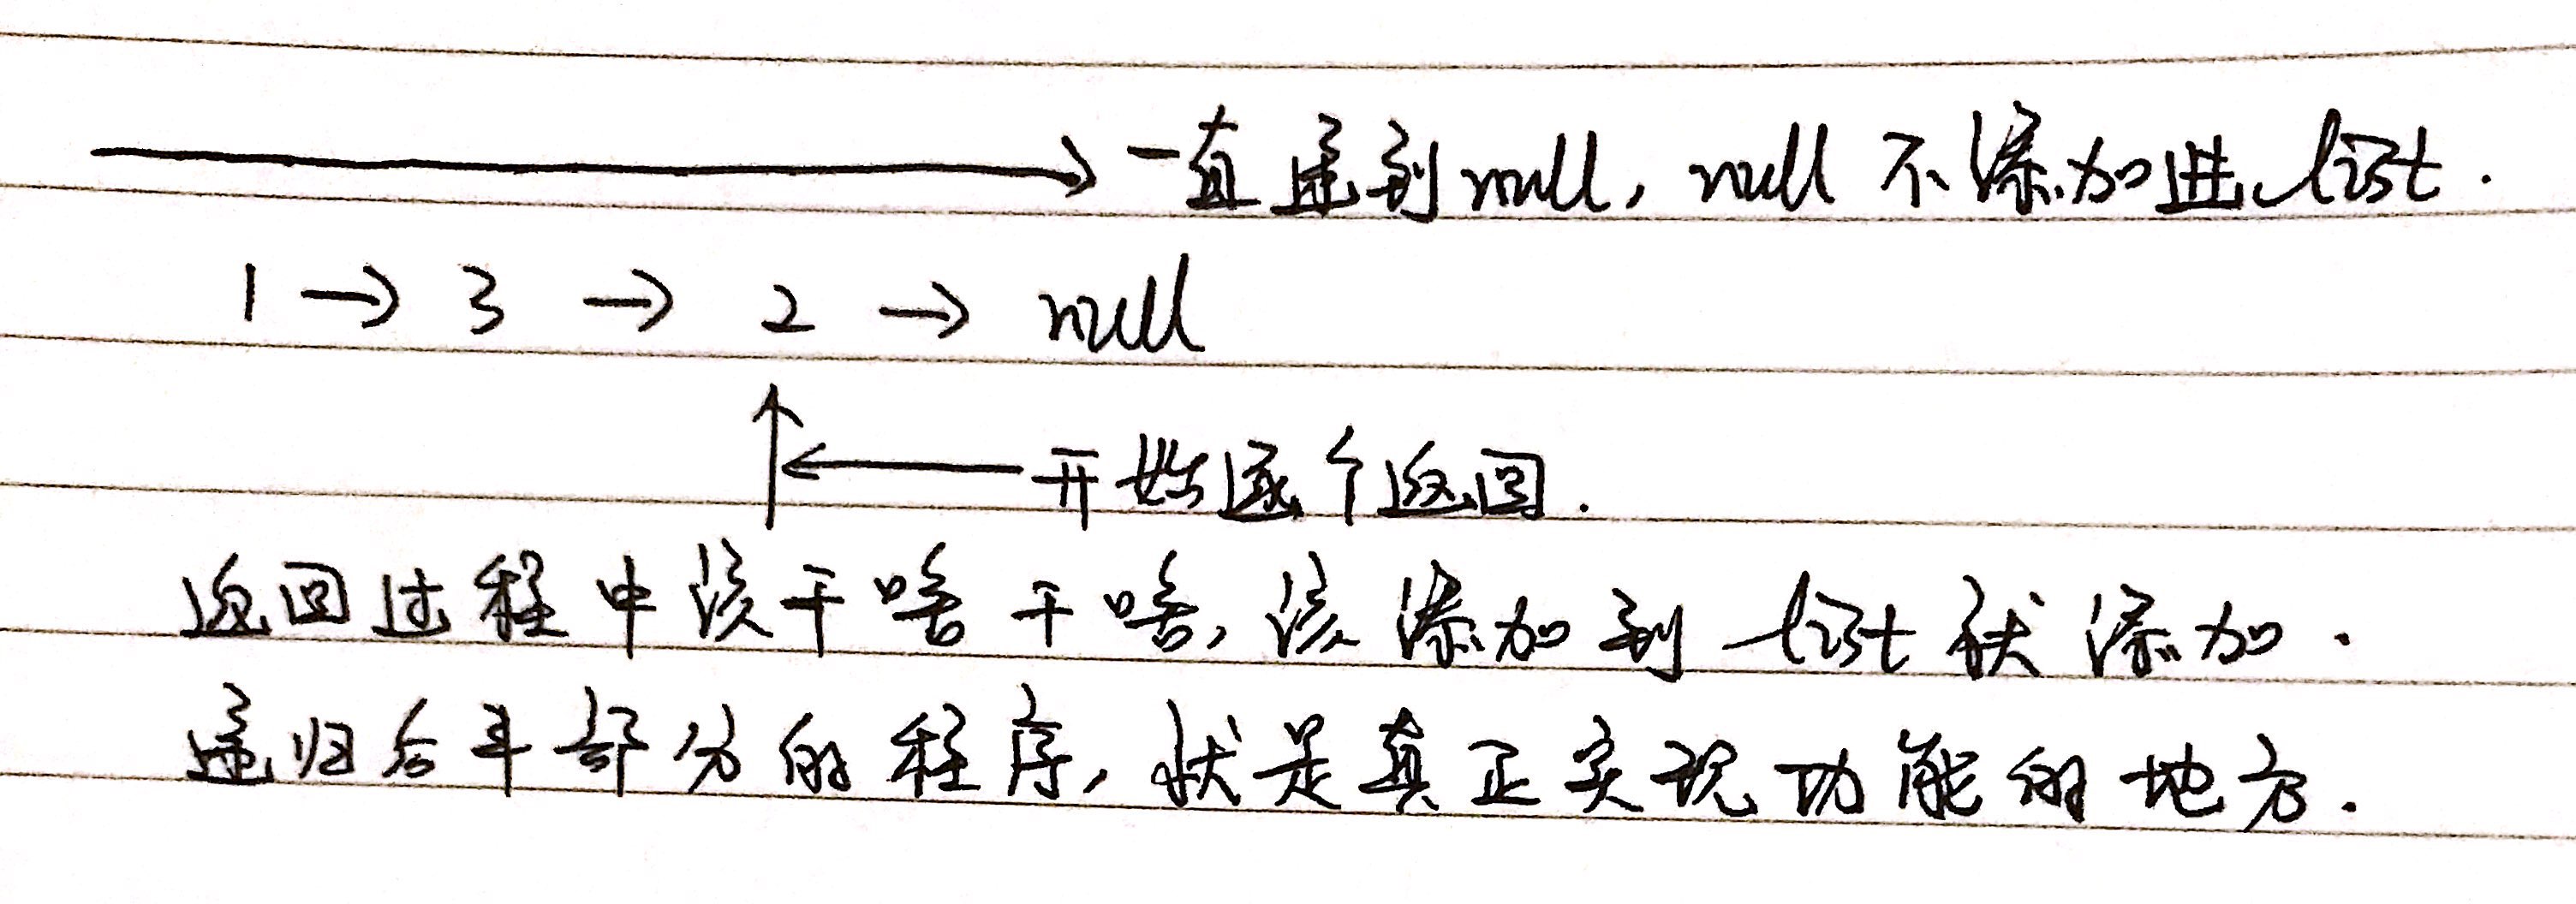 一直递到null, null 不添加进list.
1 → 3 → 2 → null
开始逐个返回.
返回过程中该干啥干啥, 该添加到 list 就添加.
递归后半部分的程序, 就是真正实现功能的地方.